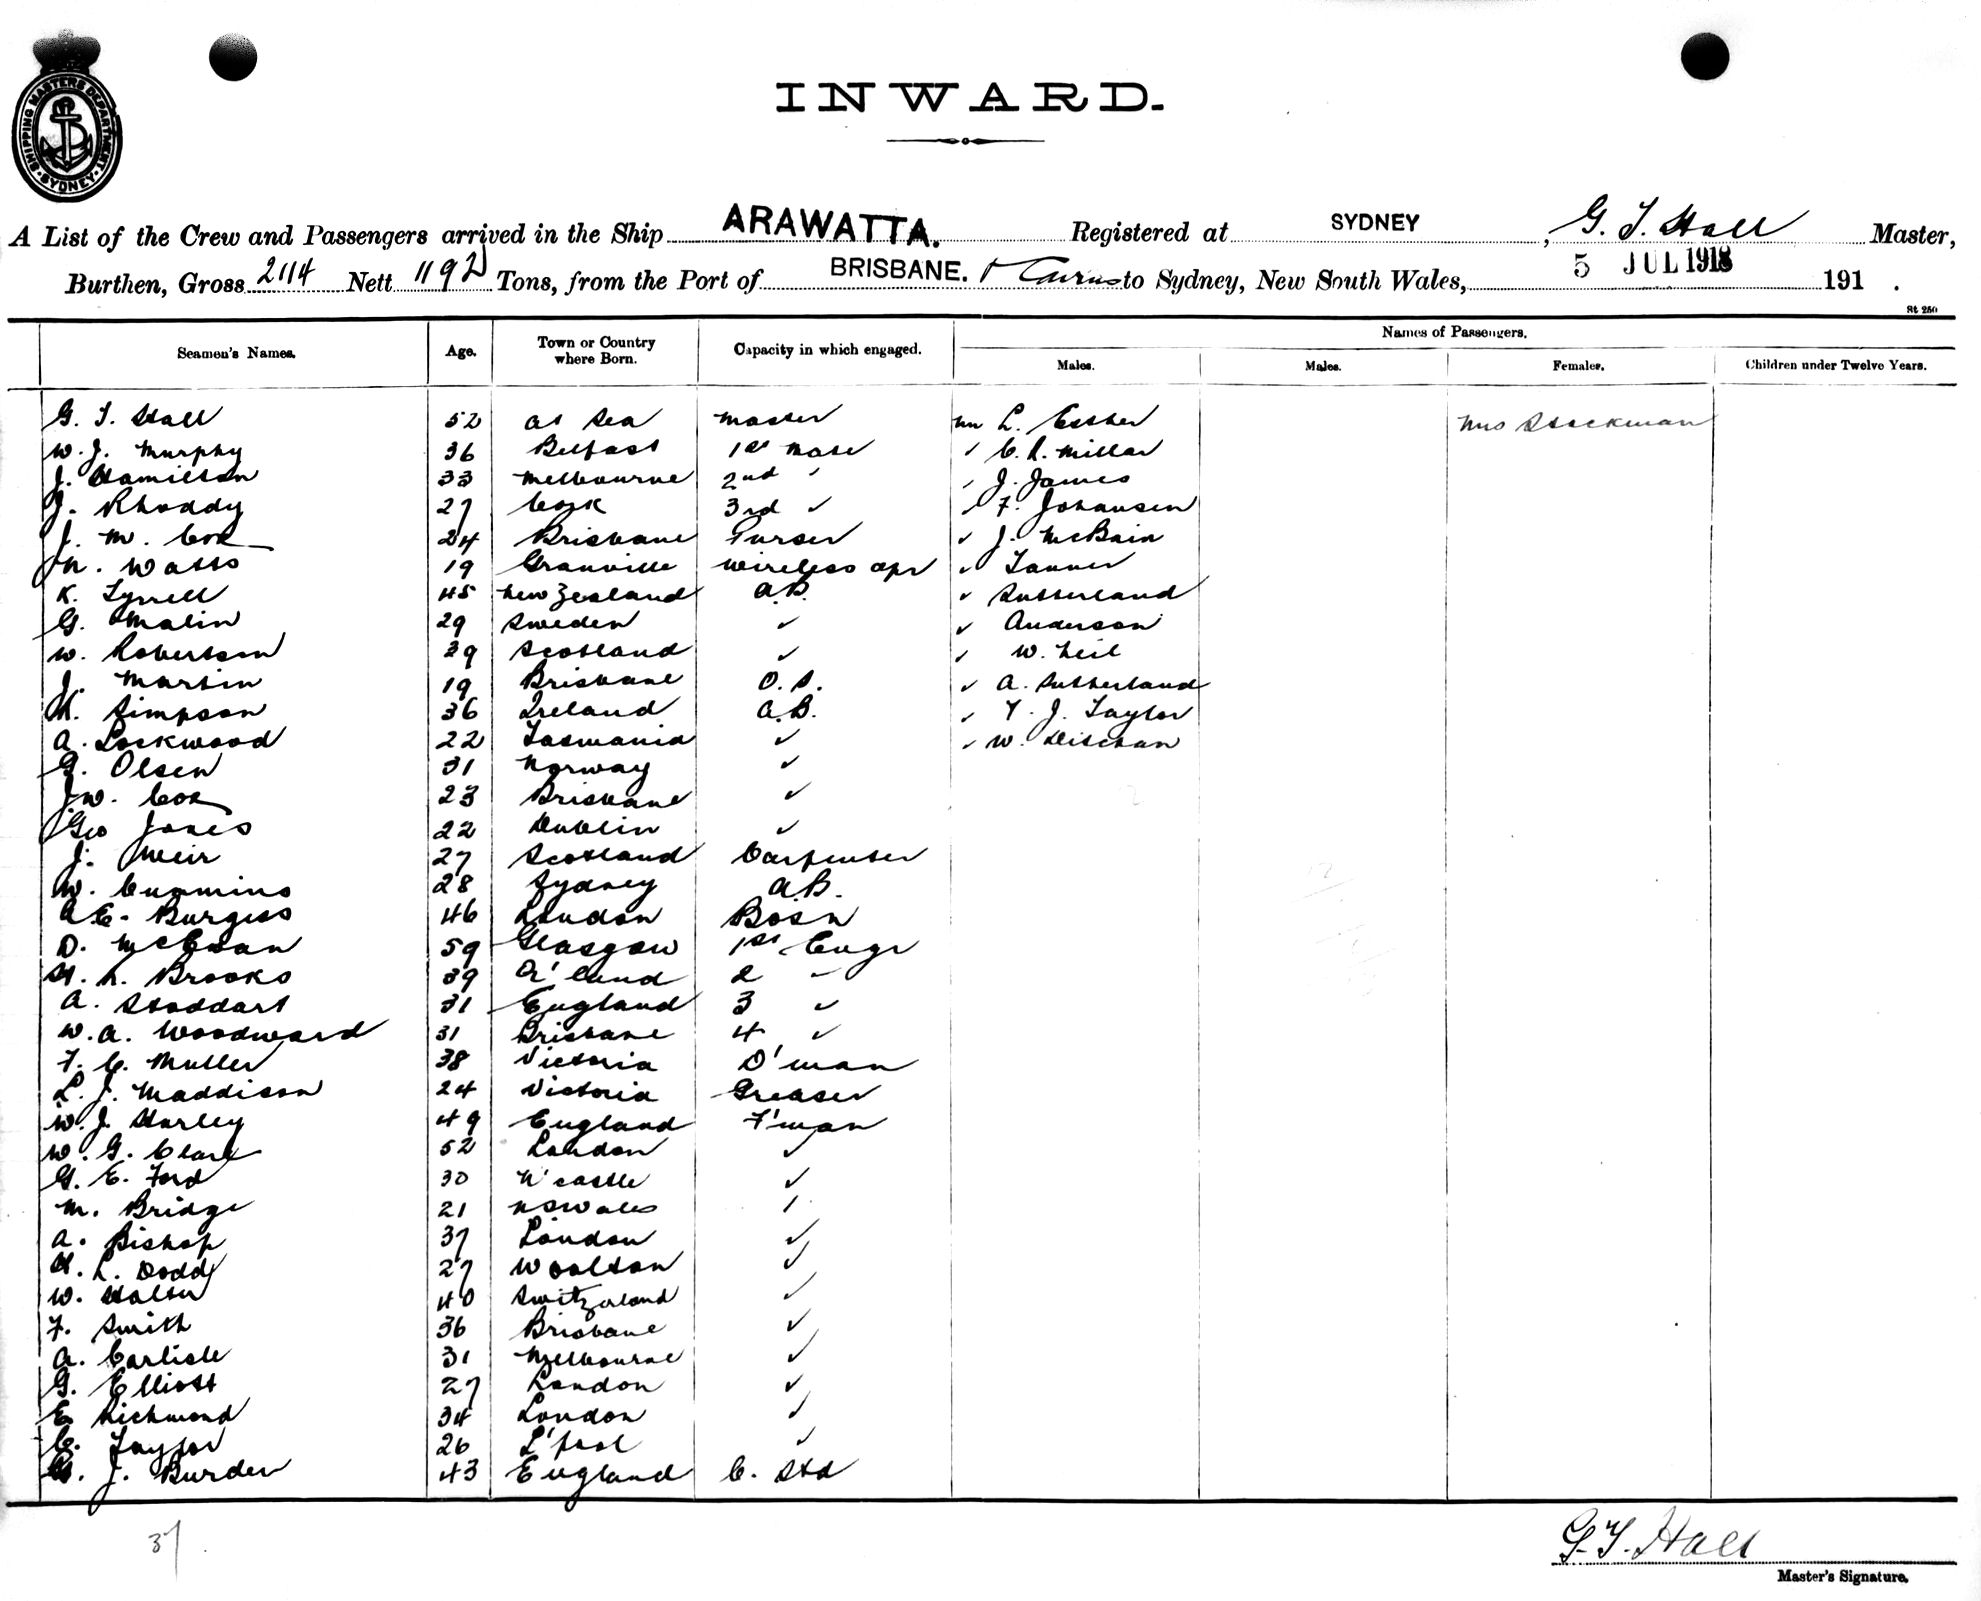 SHIPPING MASTERS DEPARTMENT
SYDNEY
INWARD.
A List of the Crew and Passengers arrived in the Ship ARAWATTA. Registered at SYDNEY, G. T. Hall Master,
Burthen, Gross 2114 Nett 1192 Tons, from the Port of BRISBANE. & Cairns to Sydney, New South Wales, 5 JUL 1918 191 .
St 250
Seamen's Names. Age. Town or Country where Born. Capacity in which engaged. Names of Passengers.
Males. Males. Females. Children under Twelve Years.
G. T. Hall 52 at Sea Master Mr L. Esther Mrs Stockman
W. J. Murphy 36 Belfast 1st Mate " C. R. Millar
J. Hamilton 33 Melbourne 2nd " " J. James
J. Rhoddy 27 Cork 3rd " " F. Johansen
J. M. Cox 24 Brisbane Purser " J. McBain
N. Watts 19 Granville Wireless opr " Tanner
K. Tyrrell 45 New Zealand A.B. " Sutherland
G. Malin 29 Sweden " " Anderson
W. Robertson 39 Scotland " " W. Neil
J. Martin 19 Brisbane O.S. " A. Sutherland
H. Simpson 36 Ireland A.B. " T. J. Taylor
A. Lockwood 22 Tasmania " " W.
G. Olsen 31 Norway "
J. W. Cox 23 Brisbane "
Geo Jones 22 Dublin "
J. Weir 27 Scotland Carpenter
W. Cummins 28 Sydney A.B.
A E. Burgess 46 London Bosn
D. McEwan 59 Glasgow 1st Engr
H. R. Brooks 39 Q'land 2 "
A. Stoddart 31 England 3 "
W. A. Woodward 31 Brisbane 4 "
F. C. Muller 38 Victoria D'man
L. J. Maddison 24 Victoria Greaser
W. J. Harley 49 England F'man
W. G. Clark 52 London "
G. E. Ford 30 N'castle "
M. Bridge 21 N S Wales "
A. Bishop 37 London "
H. L. Dodd 27 Woolton "
W. Halter 40 Switzerland "
F. Smith 36 Brisbane "
A. Carlisle 31 Melbourne "
G. Elliott 27 London "
E. Richmond 34 London "
C. Taylor 26 L'pool "
G. J. Burden 43 England C. Std
37
G. T. Hall
Master's Signature.